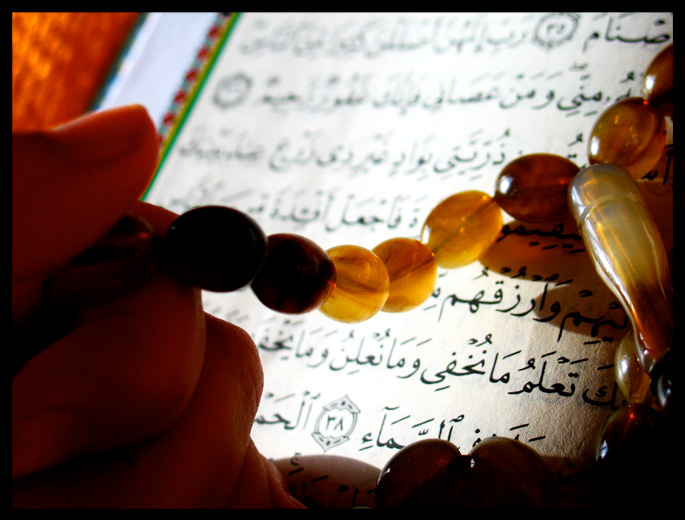 صْنَامَ ٣٥ رَبِّ إِنَّهُنَّ أَضْلَلْنَ كَثِيرًا مِّنَ ٱلنَّاسِ
هُۥ مِنِّي وَمَنْ عَصَانِي فَإِنَّكَ غَفُورٌ رَّحِيمٌ ٣٦
ذُرِّيَّتِي بِوَادٍ غَيْرِ ذِي زَرْعٍ عِندَ بَيْتِكَ
ةَ فَٱجْعَلْ أَفْئِدَةً مِّنَ
لَيْهِمْ وَٱرْزُقْهُم
كَ تَعْلَمُ مَا نُخْفِي وَمَا نُعْلِنُ وَمَا يَخْفَى
فِي ٱلسَّمَآءِ ٣٨ ٱلْحَمْ